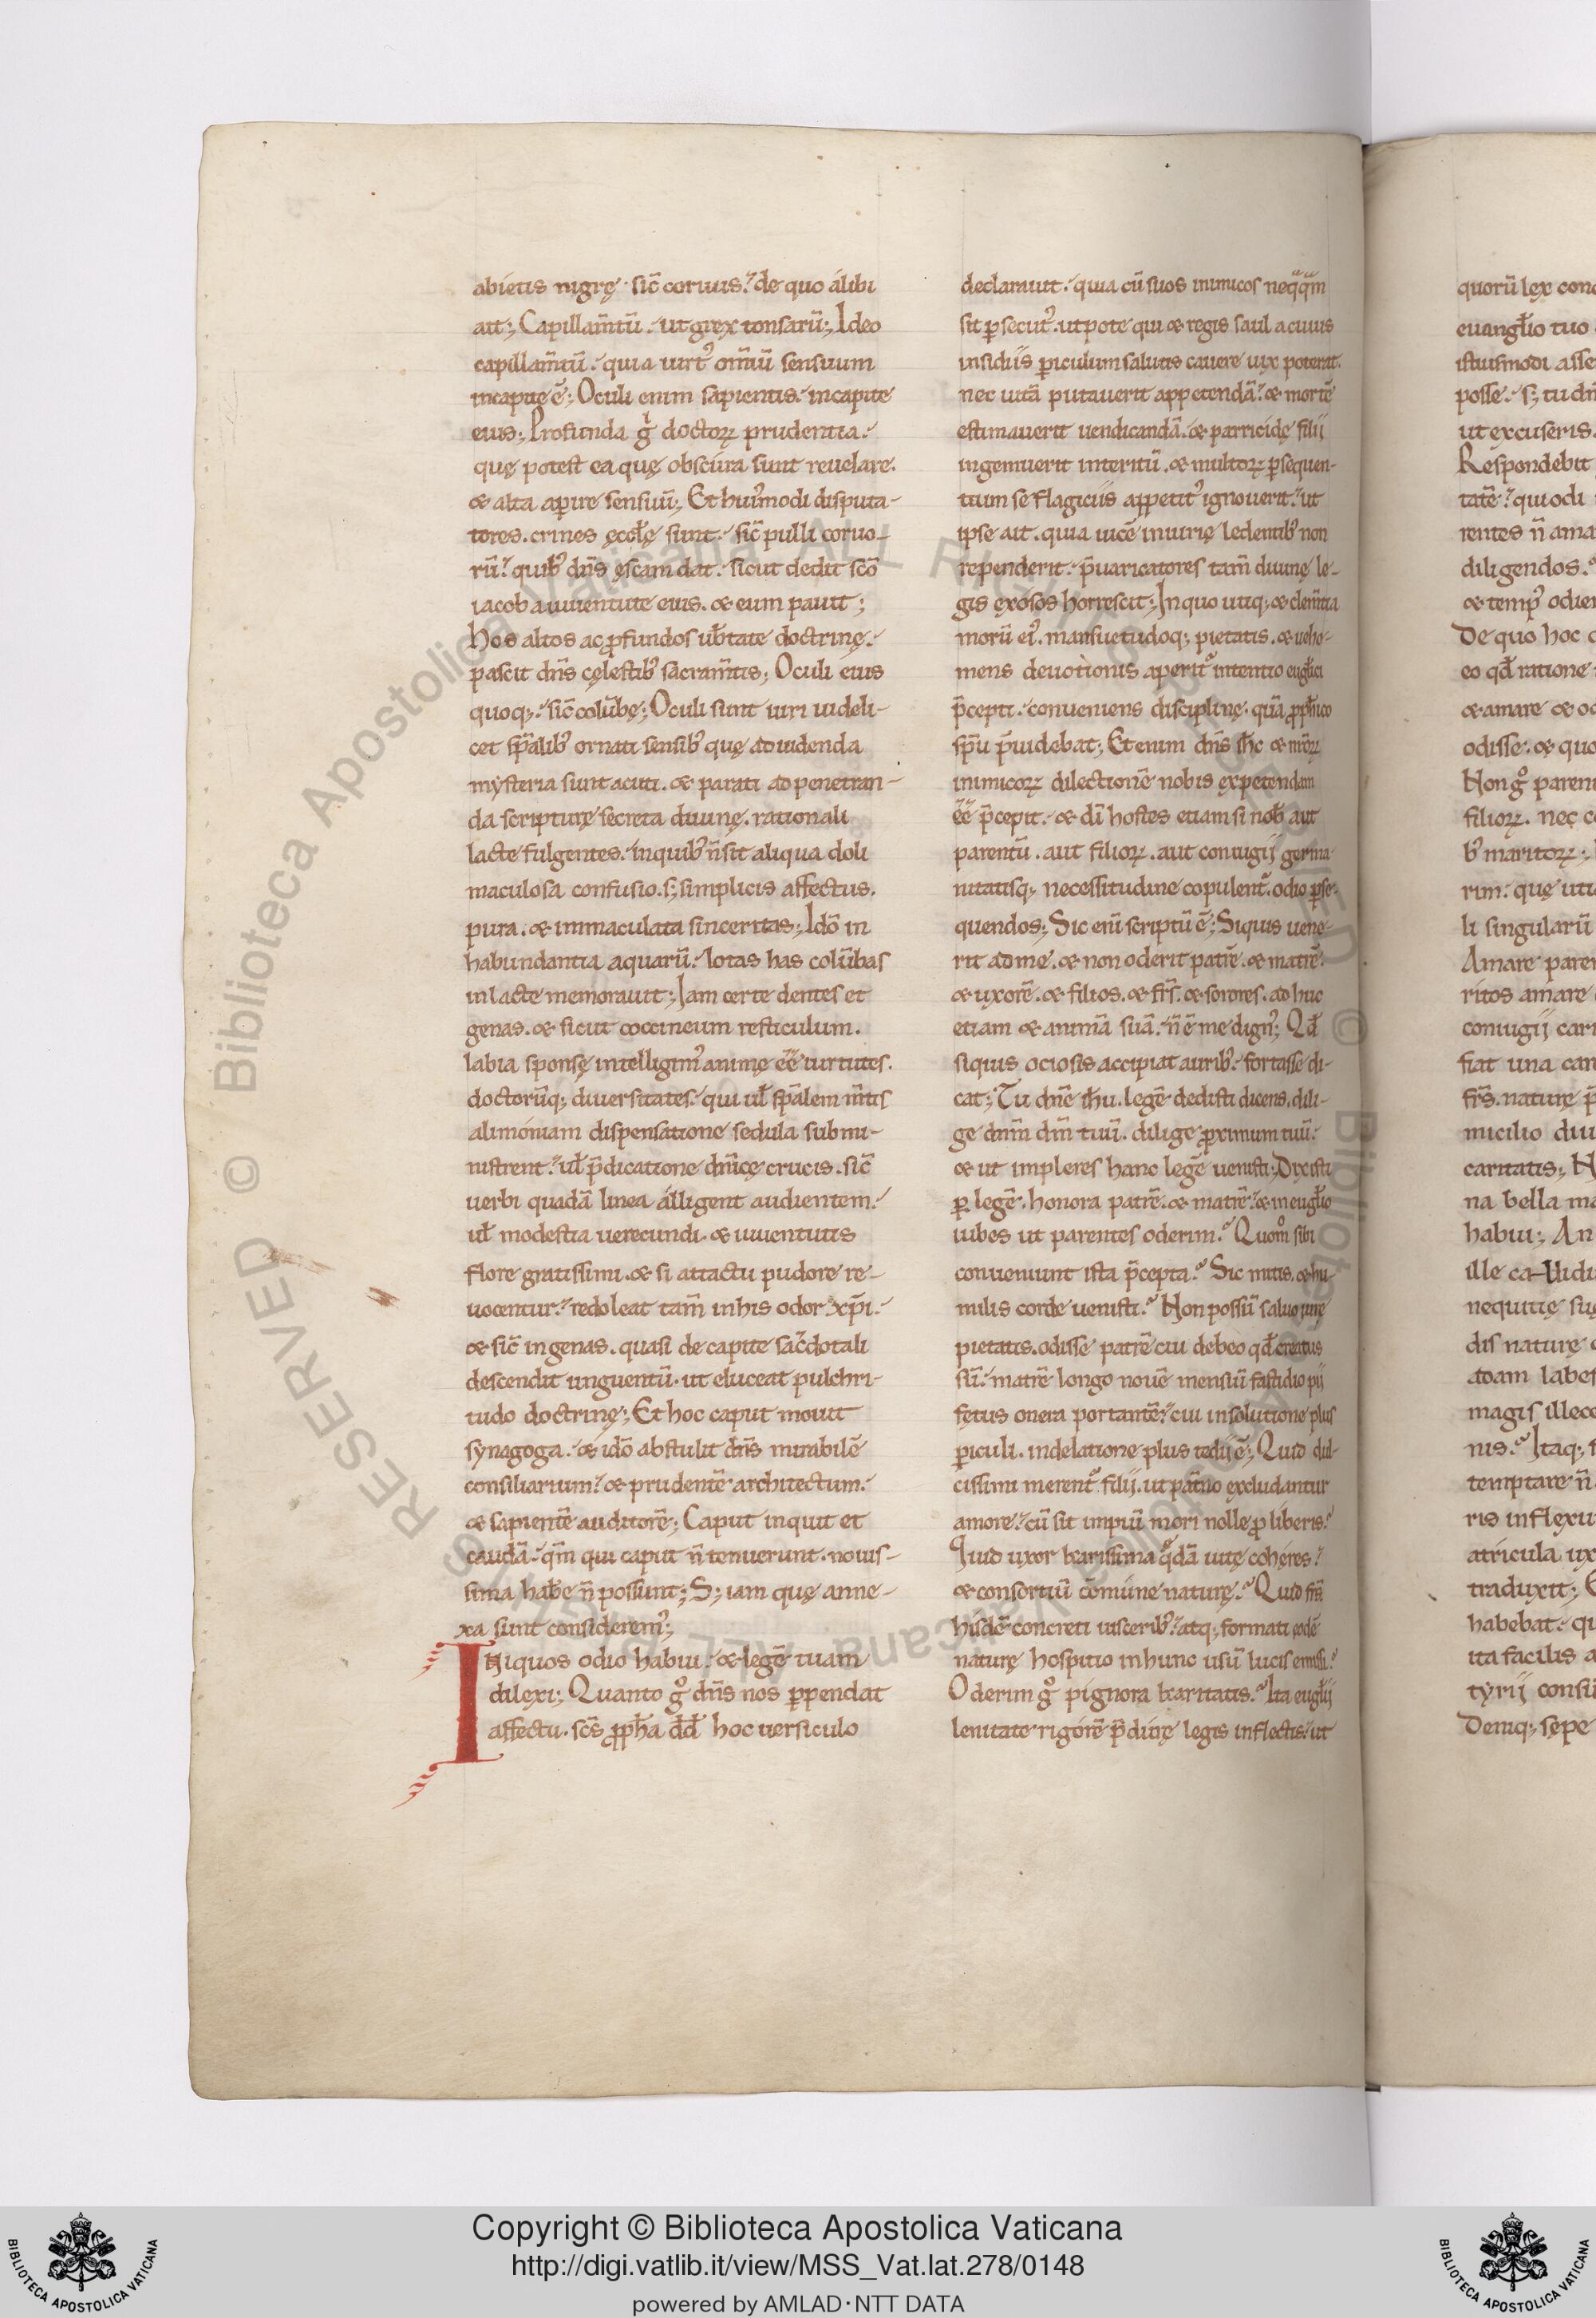 abietis nigrę· sic̄ coruus.' de quo alibi
ait; Capillam̄tū .' ut grex tonsarū; Ideo
capillam̄tū .' quia uirt᾽ om̄iū sensuum
incapite ē; Oculi enim sapientis .' incapite
eius; Profunda gͥ doctoꝝ prudentia .'
quę potest ea quę obscura sunt reuelare.
& alta aꝑire sensuū; Et hui᾽modi disputa-
tores. crines ęccłę sunt .' sic̄ pulli coruo-
rū .' quib᾽ dn̄s ęscam dat .' sicut dedit sc̄o
iacob a iuuentute eius. & eum pauit;
hos altos ac ꝓfundos ub̄tate doctrinę .'
pascit dn̄s cęlestib᾽ sacram̄tis; Oculi eius
quoq; .' sic̄ colūbę; Oculi sunt uiri uideli-
cet sp̄alib᾽ ornati sensib᾽ quę ad uidenda
mysteria sunt acuti. & parati ad penetran-
da scripturę secreta diuinę. rationali
lacte fulgentes .' inquib᾽ n̄ sit aliqua doli
maculosa confusio. s; simplicis affectus.
pura. & immaculata sinceritas; Idō in
habundantia aquarū .' lotas has colūbas
inlacte memorauit; Iam certe dentes et
genas. & sicut coccineum resticulum.
labia sponsę intelligim᾽ animę ēē uirtutes.
doctorūq; diuersitates .' qui uł sp̄alem m̄tis
alimoniam dispensatione sedula submi-
nistrent .' uł p̄dicatione dn̄icę crucis. sic̄
uerbi quadā linea alligent audientem .'
uł modestia uerecundi. & iuuentutis
flore gratissimi. & si attactu pudore re-
uocentur .' redoleat tam̄ inhis odor xp̄i .'
& sic̄ ingenas. quasi de capite sac̄dotali
descendit unguentū. ut eluceat pulchri-
tudo doctrinę; Et hoc caput mouit
synagoga .' & idō abstulit dn̄s mirabilē
consiliarium .' & prudentē architectum .'
& sapientē auditorē; Caput inquit et
caudā .' qm̄ qui caput n̄ tenuerunt. nouis-
sima hab̄e n̄ possunt; S; iam quę anne-
xa sunt considerem᾽;
INiquos odio habui .' & legē tuam
dilexi; Quanto gͦ dn̄s nos ꝑpendat
affectu. sc̄s ꝓph̄a dd̄ hoc uersiculo
declarauit .' quia cū suos inimicos neq̄q̄m
sit ꝑsecut᾽. utpote qui & regis saul a cuius
insidiis ꝑiculum salutis cauere uix poterat.
nec uitā putauerit appetendā .' & mortē
estimauerit uendicandā .' & parricidę filij
ingemuerit interitū. & multoꝝ ꝑsequen-
tium se flagiciis appetit᾽ ignouerit .' ut
ipse ait. quia uicē iniurię ledentib᾽ non
rependerit .' p̄uaricatores tam̄ diuinę le-
gis exosos horrescit; In quo utiq; & clem̄tia
morū ei᾽. mansuetudoq; pietatis. & uehe-
mens deuotionis aperit᾽ intentio euglici
p̄cepti .' conueniens disciplinę .' quā ꝓph̄ico
sp̄u p̄uidebat; Etenim dn̄s ih̄c & nr̄oꝝ
inimicoꝝ dilectionē nobis expetendam
ēē p̄cepit .' & di hostes etiam si nob᾽ aut
parentū. aut filioꝝ. aut coniugij germa-
nitatisq; necessitudine copulent᾽. odio ꝑse-
quendos; Sic eni scriptū ē; Siquis uene-
rit ad me. & non oderit patrē. & matrē.
& uxorē. & filios. & fr̄s. & sorores. ad huc
etiam & animā suā .' n̄ ē me dign᾽; Qđ
siquis ociosis accipiat aurib᾽ .' fortasse di-
cat; Tu dn̄e ih̄u. legē dedisti dicens. dili-
ge dn̄m dm̄ tuū. dilige ꝓximum tuū .'
& ut impleres hanc legē uenisti; Dixisti
ꝑ legē. honora patrē. & matrē .' & in eugłio
iubes ut parentes oderim .' Quom̊ sibi
conueniunt ista p̄cepta .' Sic mitis. & hu-
milis corde uenisti .' Non possū saluo iure
pietatis. odisse patrē cui debeo qđ creatus
sū .' matrē longo nouē mensiū fastidio pij
fętus onera portantē .' cui insolutione plus
ꝑiculi. indelatione plus tedij ē; Quid dul-
cissimi merent᾽ filij. ut pat̄no excludantur
amore .' cū sit impiū mori nolle ꝓ liberis .'
Quid uxor karissima q̄dā uitę coheres .'
& consortiū com̄une naturę .' Quid fr̄s
hisdē concreti uiscerib᾽ .' atq; formati eodē
naturę hospitio inhunc usū lucis emissi .'
Oderim gͦ pignora karitatis .' Ita euglij
lenitate rigorē p̄diuę legis inflectis .' ut
quorū lex
euangłio tuo
istiusmodi
posse .' s; tu
ut excuseris
Respondebit
tatē .' qui odi
rentes n̄ ama
diligendos.
& temp᾽ odien
De quo hoc
eo qđ ratione
& amare & o
odisse. & quo
Non gͦ paren
filioꝝ. nec
b᾽ maritoꝝ;
rim .' quę uti
li singularū
Amare paren
ritos amare
coniugij cari
fiat una car
fr̄s. naturę
micilio diu
caritatis; N
na bella ma
habui; An
ille
nequitię suę
dis naturę
adam labes
magis illece
nis .' Itaq;
temptare n̄
ris inflexu
atricula ux
traduxit;
habebat .' qu
ita facilis a
tyrij consu
Deniq; sępe
Copyright © Biblioteca Apostolica Vaticana
http://digi.vatlib.it/view/MSS_Vat.lat.278/0148
powered by AMLAD·NTT DATA
BIBLIOTECA APOSTOLICA VATICANA
BIBLIOTECA APOSTOLICA VATICANA
© Biblioteca Apostolica Vaticana ALL RIGHTS RESERVED